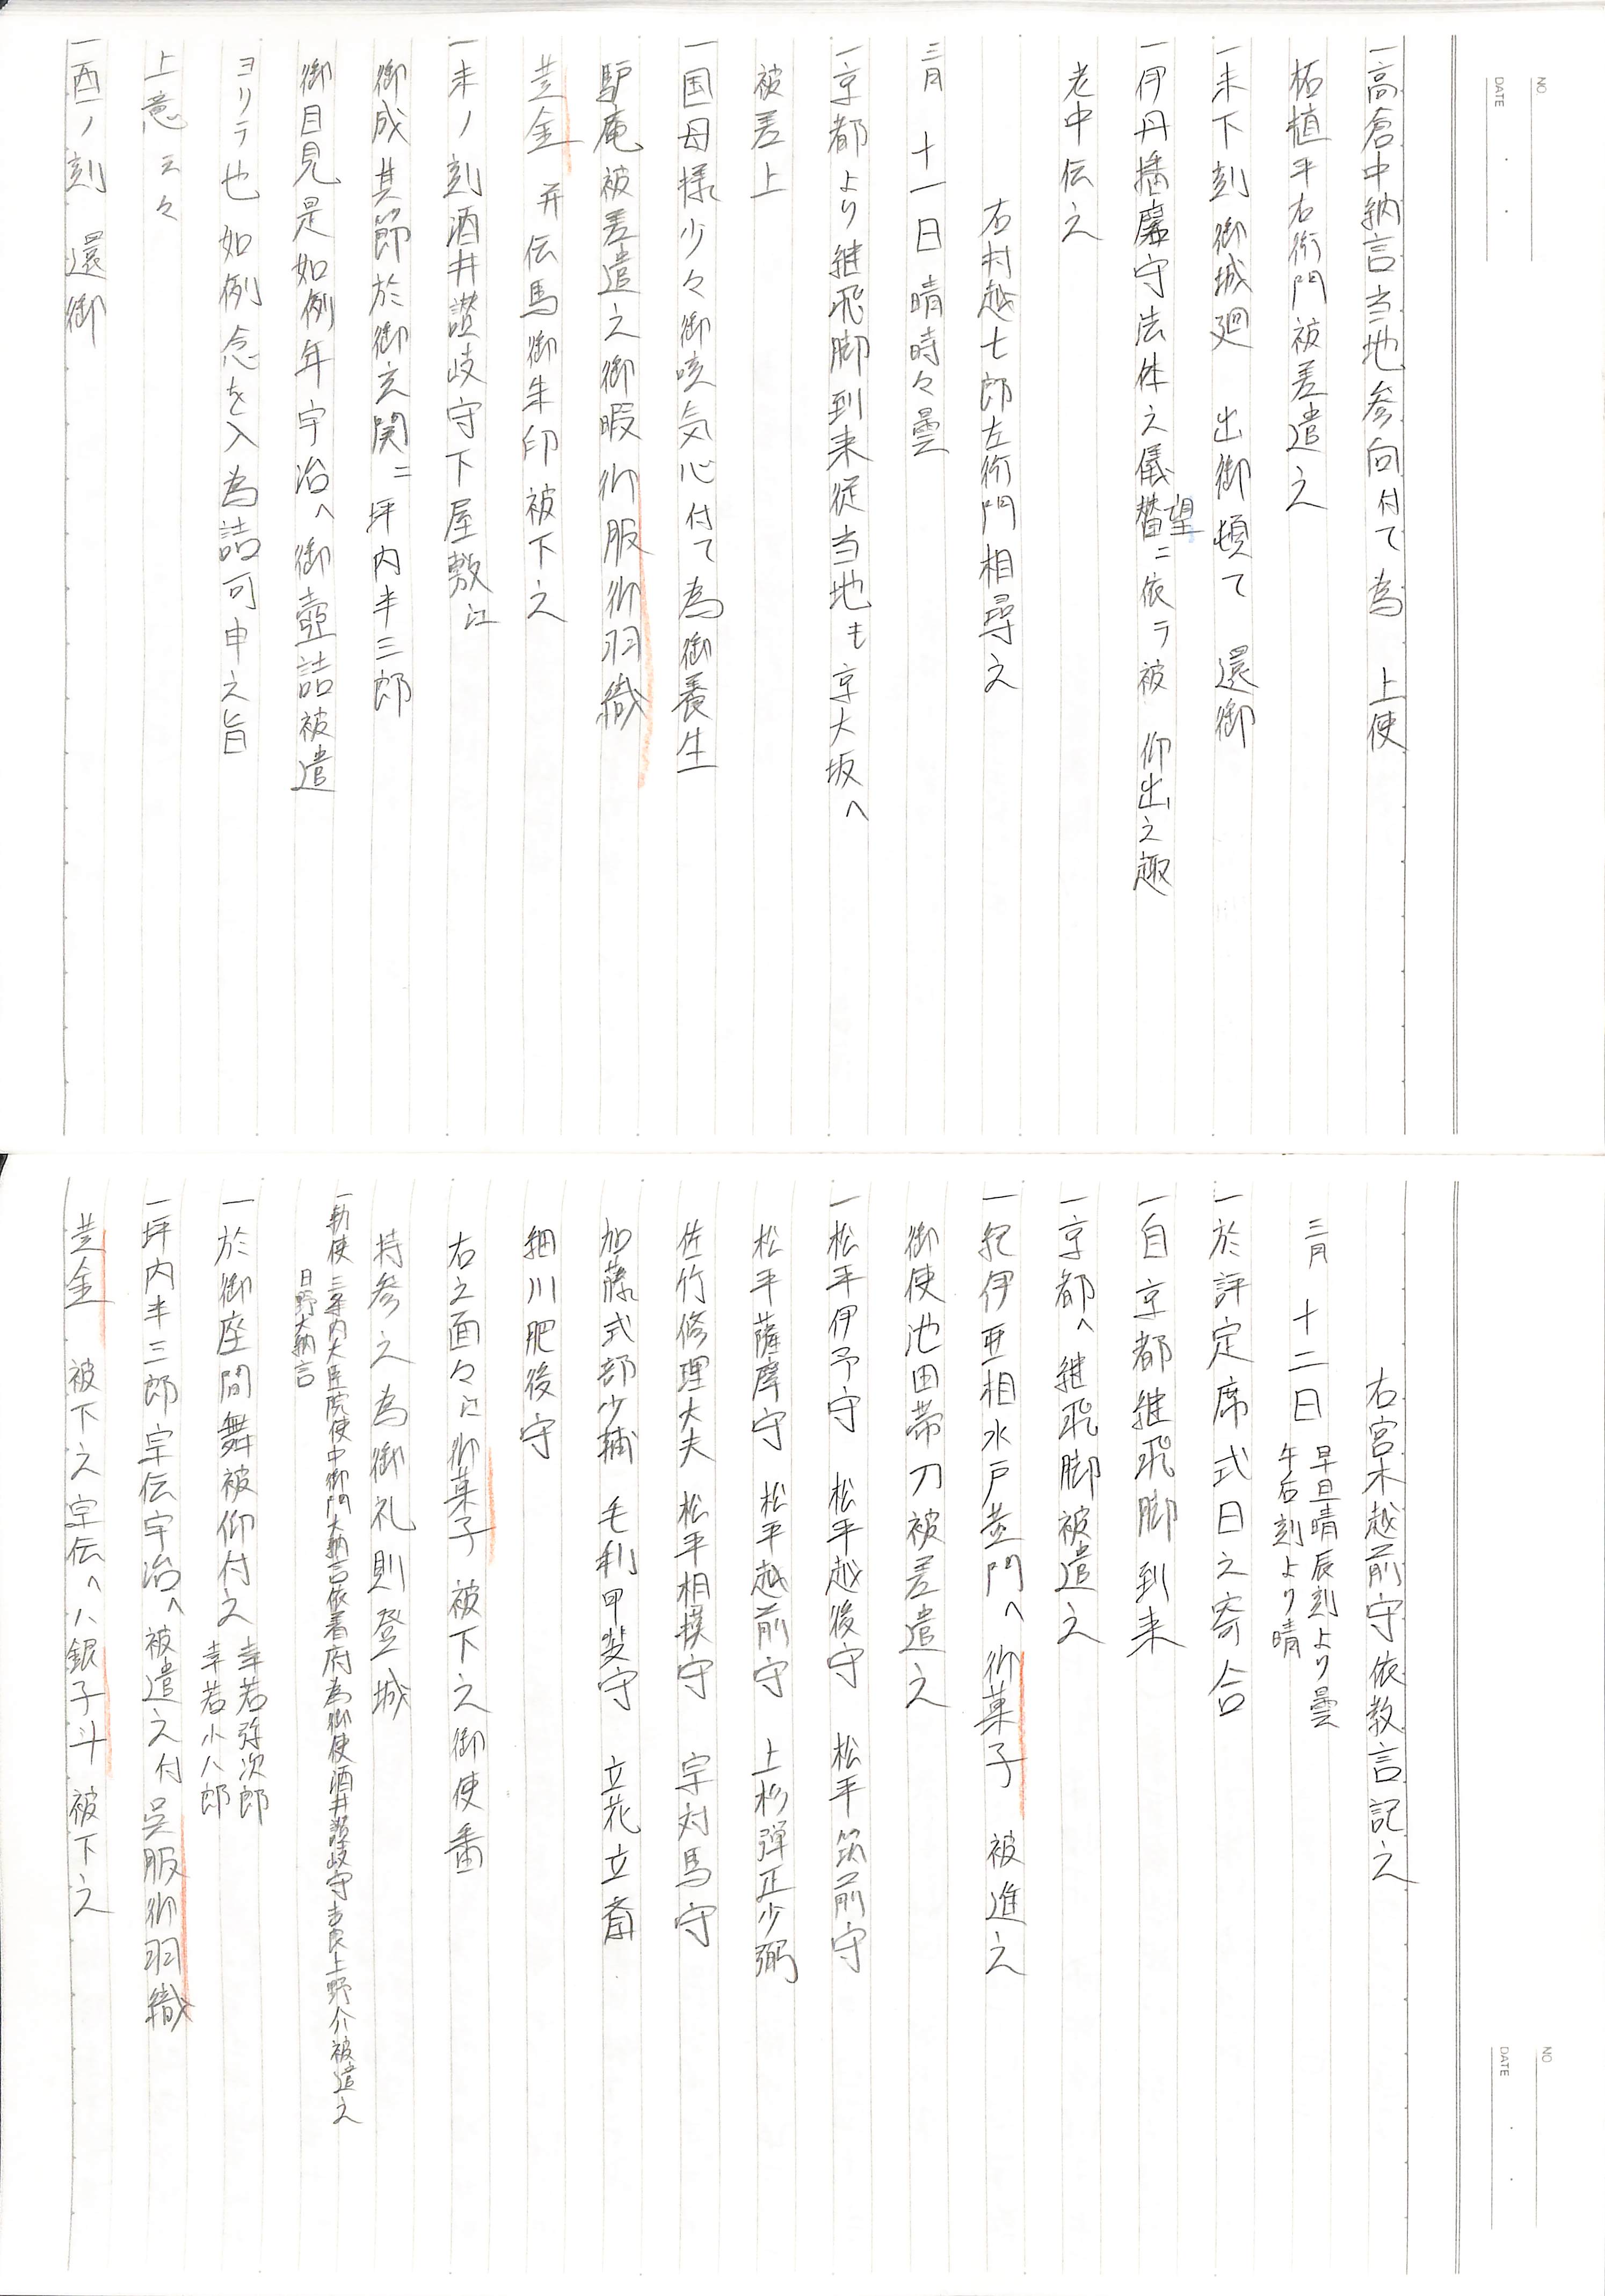 NO
DATE
一高倉中納言当地参向付て為　上使
柘植平右衛門被差遣之
一未下刻御城廻　出御頓て　還御
一伊丹播磨守法体之儀替望ニ依テ被　仰出之趣
老中伝之
右村越七郎左衛門相尋之
三月　十一日　晴時々曇
一京都より継飛脚到来従当地も京大坂へ
被差上
一国母様少々御咳気心付て為御養生
驢庵被差遣之御暇　御服御羽織
黄金　并伝馬御朱印被下之
一未ノ刻酒井讃岐守下屋敷江
御成其節於御玄関ニ坪内半三郎
御目見是如例年宇治へ御壺詰被遣
ヨリテ也如例念を入為詰可申之旨
上意云々
一酉ノ刻　還御
NO
DATE
右宮木越前守依教言記之
三月　十二日　早旦晴辰刻より曇
午后刻より晴
一於評定席式日之寄合
一自京都継飛脚到来
一京都へ継飛脚被遣之
一紀伊亜相水戸黄門へ　御菓子　被進之
御使池田帯刀被差遣之
一松平伊予守　松平越後守　松平筑前守
松平薩摩守　松平越前守　上杉弾正少弼
佐竹修理大夫　松平相模守　宗対馬守
加藤式部少輔　毛利甲斐守　立花立斎
細川肥後守
右之面々江御菓子　被下之御使番
持参之為御礼則登城
一勅使三条内大臣院使中御門大納言依着府為御使酒井讃岐守吉良上野介被遣之
日野大納言
一於御座間舞被仰付之　幸若弥次郎
幸若小八郎
一坪内半三郎宗伝宇治へ被遣之付　呉服御羽織
黄金　被下之宗伝へハ銀子斗　被下之